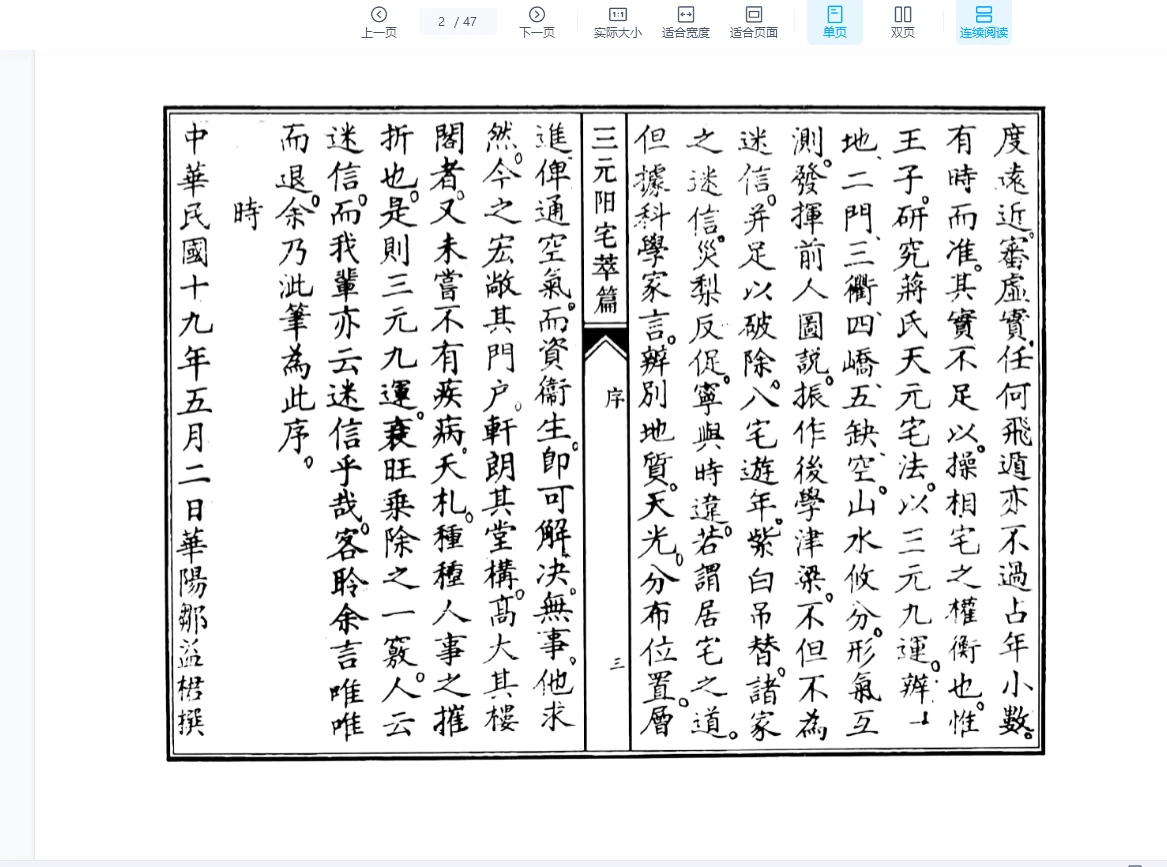 上一页
2 / 47
下一页
1:1
实际大小
适合宽度
适合页面
单页
双页
连续阅读
度遠近。審虛實。任何飛遁亦不過占年小數。
有時而准。其實不足以。操相宅之權衡也。惟
王子。研究蔣氏天元宅法。以三元九運。辨一
地、二門、三衢、四嶠、五缺、空山。水攸分。形氣互
測。發揮前人圖説。振作後學津梁。不但不為
迷信。并足以破除。八宅遊年。紫白吊替。諸家
之迷信。災梨反促。寧與時違。若謂居宅之道。
但據科學家言。辨別地質。天光。分布位置。層
三元阳宅萃篇
序
三
進俾通空氣。而資衞生。即可解决。無事。他求
然。今之宏敞其門户。軒朗其堂構。高大其樓
閣者。又未嘗不有疾病。夭札。種種人事之摧
折也。是則三元九運。衰旺乗除之一竅。人云
迷信。而我輩亦云迷信乎哉。客聆余言唯唯
而退。余乃泚筆為此序。
時
中華民國十九年五月二日華陽鄒益桾撰